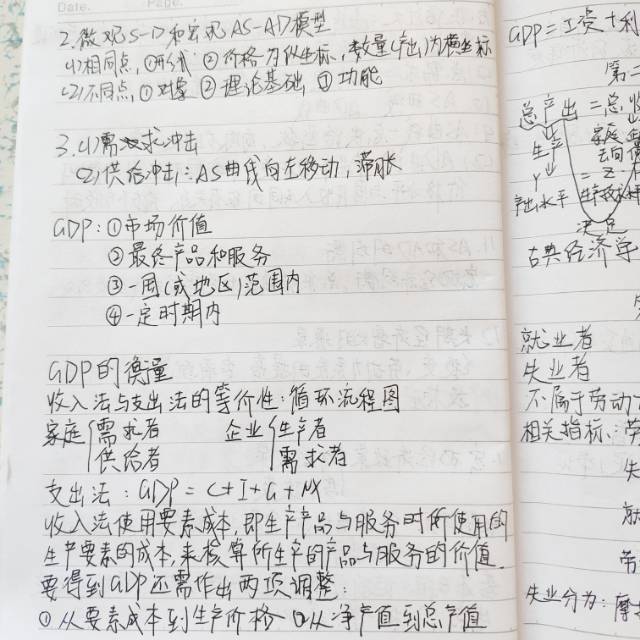 Date. Page.
2.微观S-D和宏观AS-AD模型
(1)相同点,①形式 ②价格为纵坐标,数量(产出)为横坐标
(2)不同点,①对象 ②理论基础 ③功能
3.(1)需求冲击
(2)供给冲击:AS曲线向左移动,滞胀
GDP:①市场价值
②最终产品和服务
③一国(或地区)范围内
④一定时期内
GDP的衡量
收入法与支出法的等价性:循环流程图
家庭{需求者 企业{生产者
供给者 需求者
支出法:GDP=C+I+G+NX
收入法使用要素成本,即生产产品与服务时所使用的
生产要素的成本,来核算所生产的产品与服务的价值.
要得到GDP还需作出两项调整:
①从要素成本到生产价格 ②从净产值到总产值
GDP=工资+利
第二
总产出=总收
生产 家庭
Y
产出水平
决定
古典经济学
就业者
失业者
不属于劳动力
相关指标:劳
失
就
失业分为:摩